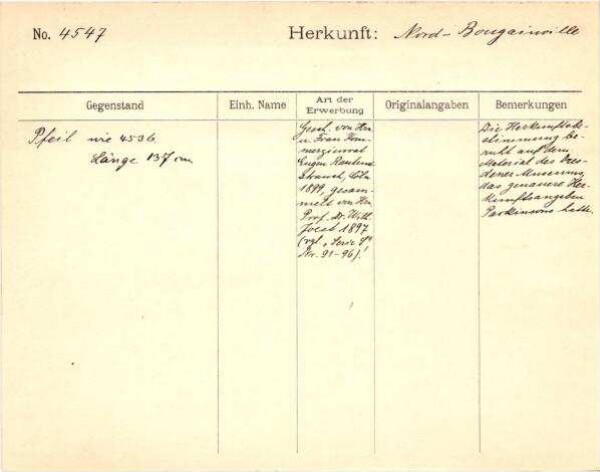 No. 4547 Herkunft: Nord-Bougainville
Gegenstand Einh. Name Art der Erwerbung Originalangaben Bemerkungen
Pfeil wie 4536
Länge 137 cm
Gesch. von Herrn
u. Frau Kom-
merzienrat
Eugen Rauten-
strauch, Cöln
1899, gesam-
melt von Herrn
Prof. Dr. Wilh.
Joest 1897
(vgl. Serie
Nr. 91-96)!
Die Herkunftsbe-
stimmung be-
ruht auf dem
Material des Dres-
dener Museums,
das genauere Her-
kunftsangaben
Parkinsons hatte.